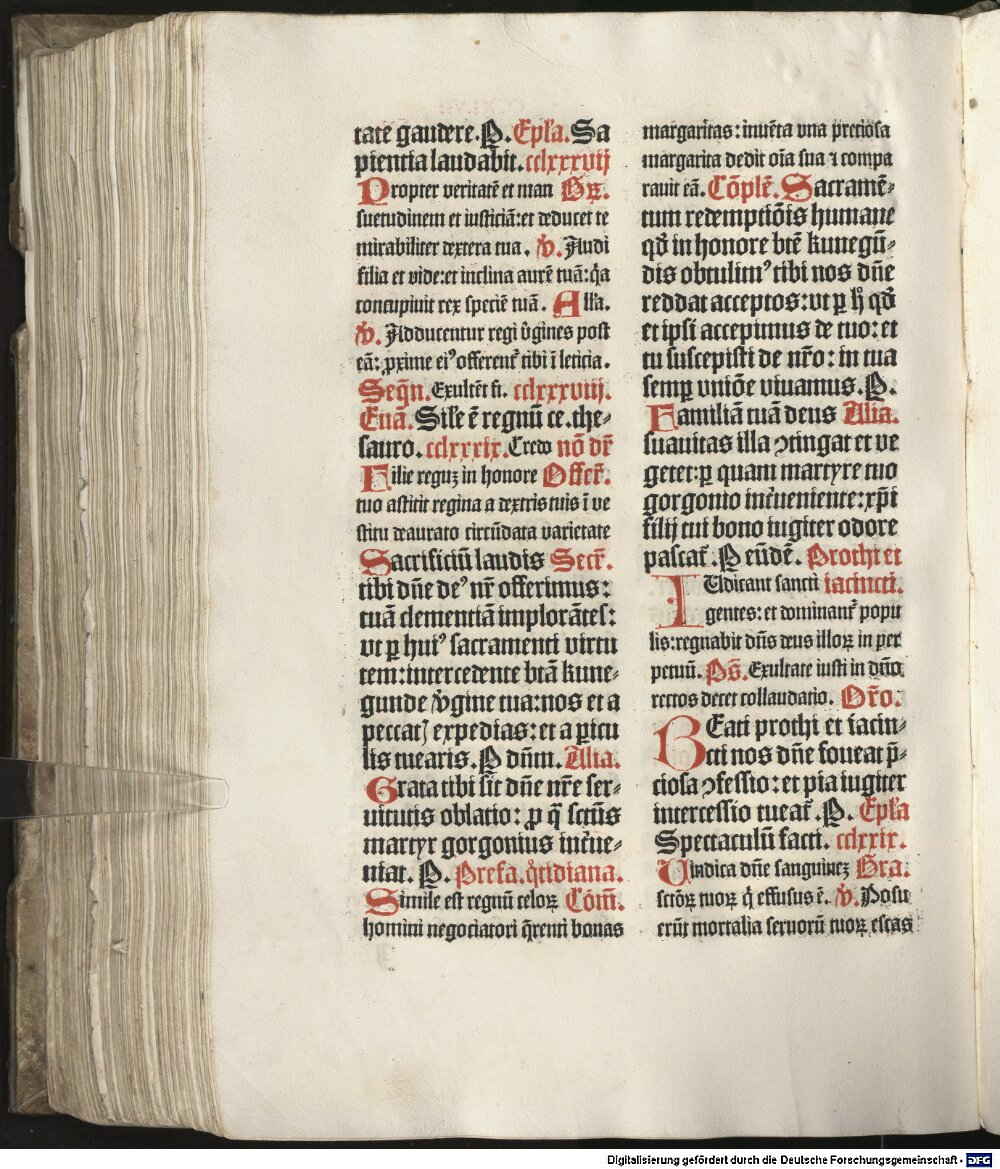 tate gaudere. P. Ep̄la. Sa
pientia laudabit. cclxxxvij
Propter veritatē et man Gr̄.
suetudinem et iusticiā: et deducet te
mirabiliter dextera tua. V̄. Audi
filia et vide: et inclina aurē tuā: q̄a
concupiuit rex speciē tuā. Alľa.
V̄. Adducentur regi v̄gines post
eā: ꝓxime eiꝰ offerent᷑ tibi ī leticia.
Seq̄n. Exultēt fi. cclxxxviij.
Euā. Sile ē regnū ce. the-
sauro. cclxxxix. Credo nō dr̄
Filie reguꝫ in honore Offer̄.
tuo astitit regina a dextris tuis ī ve
stitu deaurato circūdata varietate
Sacrificiū laudis Secr̄.
tibi dn̄e deꝰ nr̄ offerimus:
tuā clementiā implorātes:
vt ꝑ huiꝰ sacramenti virtu
tem: intercedente btā kune-
gunde v̄gine tua: nos et a
peccat᷑ expedias: et a ꝑicu
lis tuearis. P dn̄m. Alia.
Grata tibi sit dn̄e nr̄e ser-
uitutis oblatio: ꝓ q̄ sctūs
martyr gorgonius int̄ue-
niat. P. Prefa. q̄tidiana.
Simile est regnū celoꝝ Cōm̄.
homini negociatori q̄renti bonas
margaritas: inuēta vna preciosa
margarita dedit oīa sua ⁊ compa
rauit eā. Cōplē. Sacramē-
tum redemptiōis humane
qđ in honore btē kunegū-
dis obtulimꝰ tibi nos dn̄e
reddat acceptos: vt ꝑ h̄ qđ
et ipsi accepimus de tuo: et
tu suscepisti de nr̄o: in tua
semꝑ vniōe viuamus. P.
Familiā tuā deus Alia.
suauitas illa ꝯtingat et ve
getet: ꝑ quam martyre tuo
gorgonio int̄ueniente: xp̄i
filij tui bono iugiter odore
pascat᷑. P eūdē. Prothi et
IUdicant sancti iacincti.
gentes: et dominant᷑ popu
lis: regnabit dn̄s deus illoꝝ in per
petuū. Ps̄. Exultate iusti in dn̄o
rectos decet collaudatio. Or̄o.
BEati prothi et iacin-
cti nos dn̄e foueat p̄-
ciosa ꝯfessio: et pia iugiter
intercessio tueat᷑. P. Ep̄la
Spectaculū facti. cclxxix.
Uindica dn̄e sanguineꝫ Gra.
sctōꝝ tuoꝝ q̄ effusus ē. V̄. Posu
erūt mortalia seruorū tuoꝝ escas
Digitalisierung gefördert durch die Deutsche Forschungsgemeinschaft - DFG